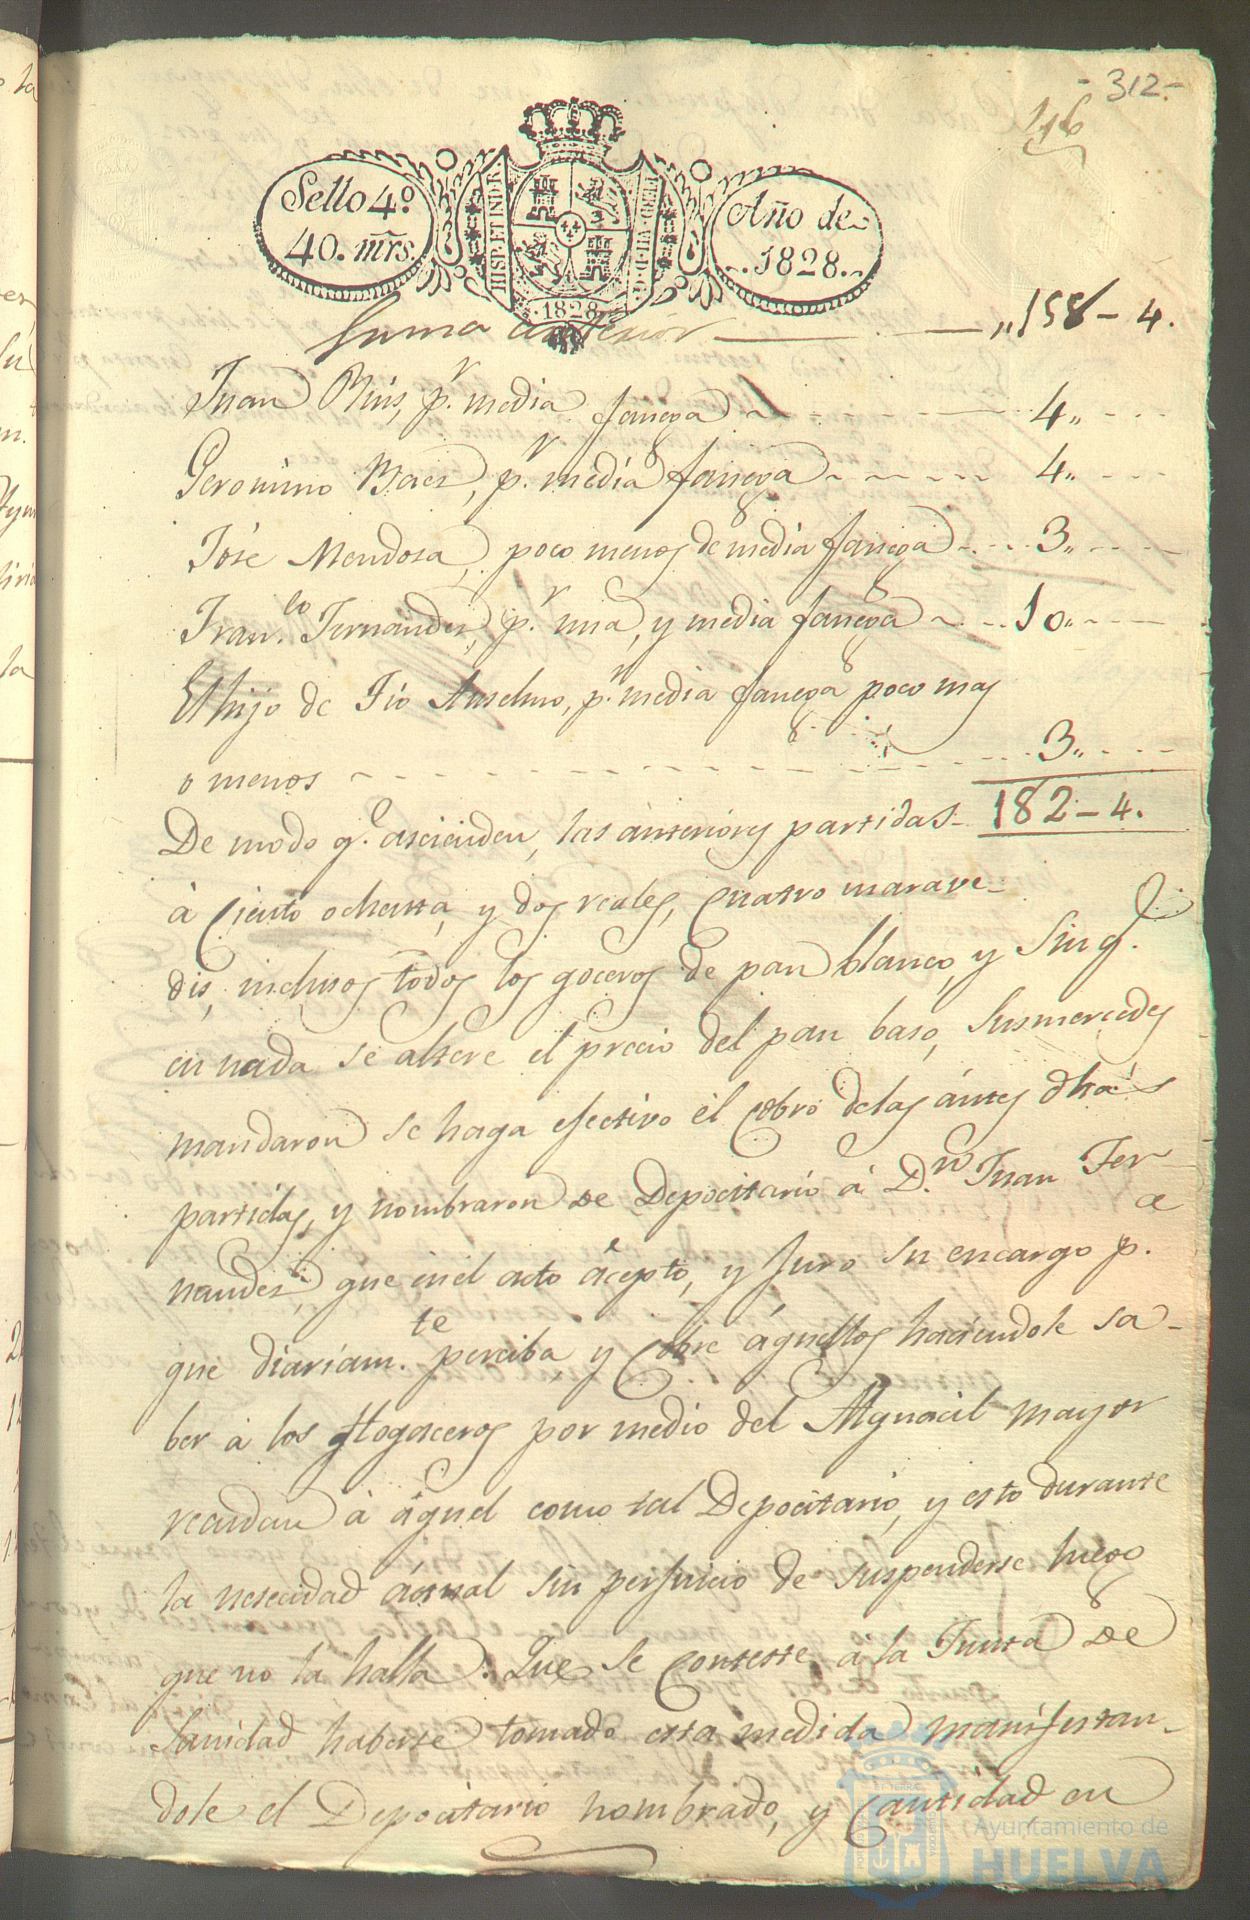 -312-
116
Sello 4º
40. mrs.
HISP. ET IND. R.
FERD. VII. D. G.
1828
Año de
1828.
Suma anterior ,,158-4.
Juan Ruis, pr. media fanega 4,,
Geronimo Baes, pr. media fanega 4,,
José Mendosa, poco menos de media fanega 3,,
Franco. Fernandes, pr. una, y media fanega 10,,
El hijo de Tio Anselmo, pr. media fanega poco mas
o menos 3,,
De modo qe. ascienden, las anteriores partidas 182-4.
à Ciento ochenta, y dos reales, Cuatro marave-
dis, inclusos todos los goceros de pan blanco, y sin q.
en nada se altere el precio del pan baso, Susmercedes
mandaron se haga efectivo el Cobro delas ántes dhas
partidas, y nombraron de Depocitario á Dn. Juan Fer-
nandes, que enel acto acepto, y Juro su encargo pa.
que diariamte. perciba y Cobre áquellos haciendole sa-
ber à los Hogaceros por medio del Alguacil mayor
rcaudan à àquel como tal Depocitario, y esto durante
la nesecidad áctual sin perjuicio de suspenderse luego
que no la halla. Que se Conteste à la Junta de
Sanidad haberse tomado esta medida manifestan-
dole el Depocitario nombrado, y Cantidad en
Ayuntamiento de
HUELVA